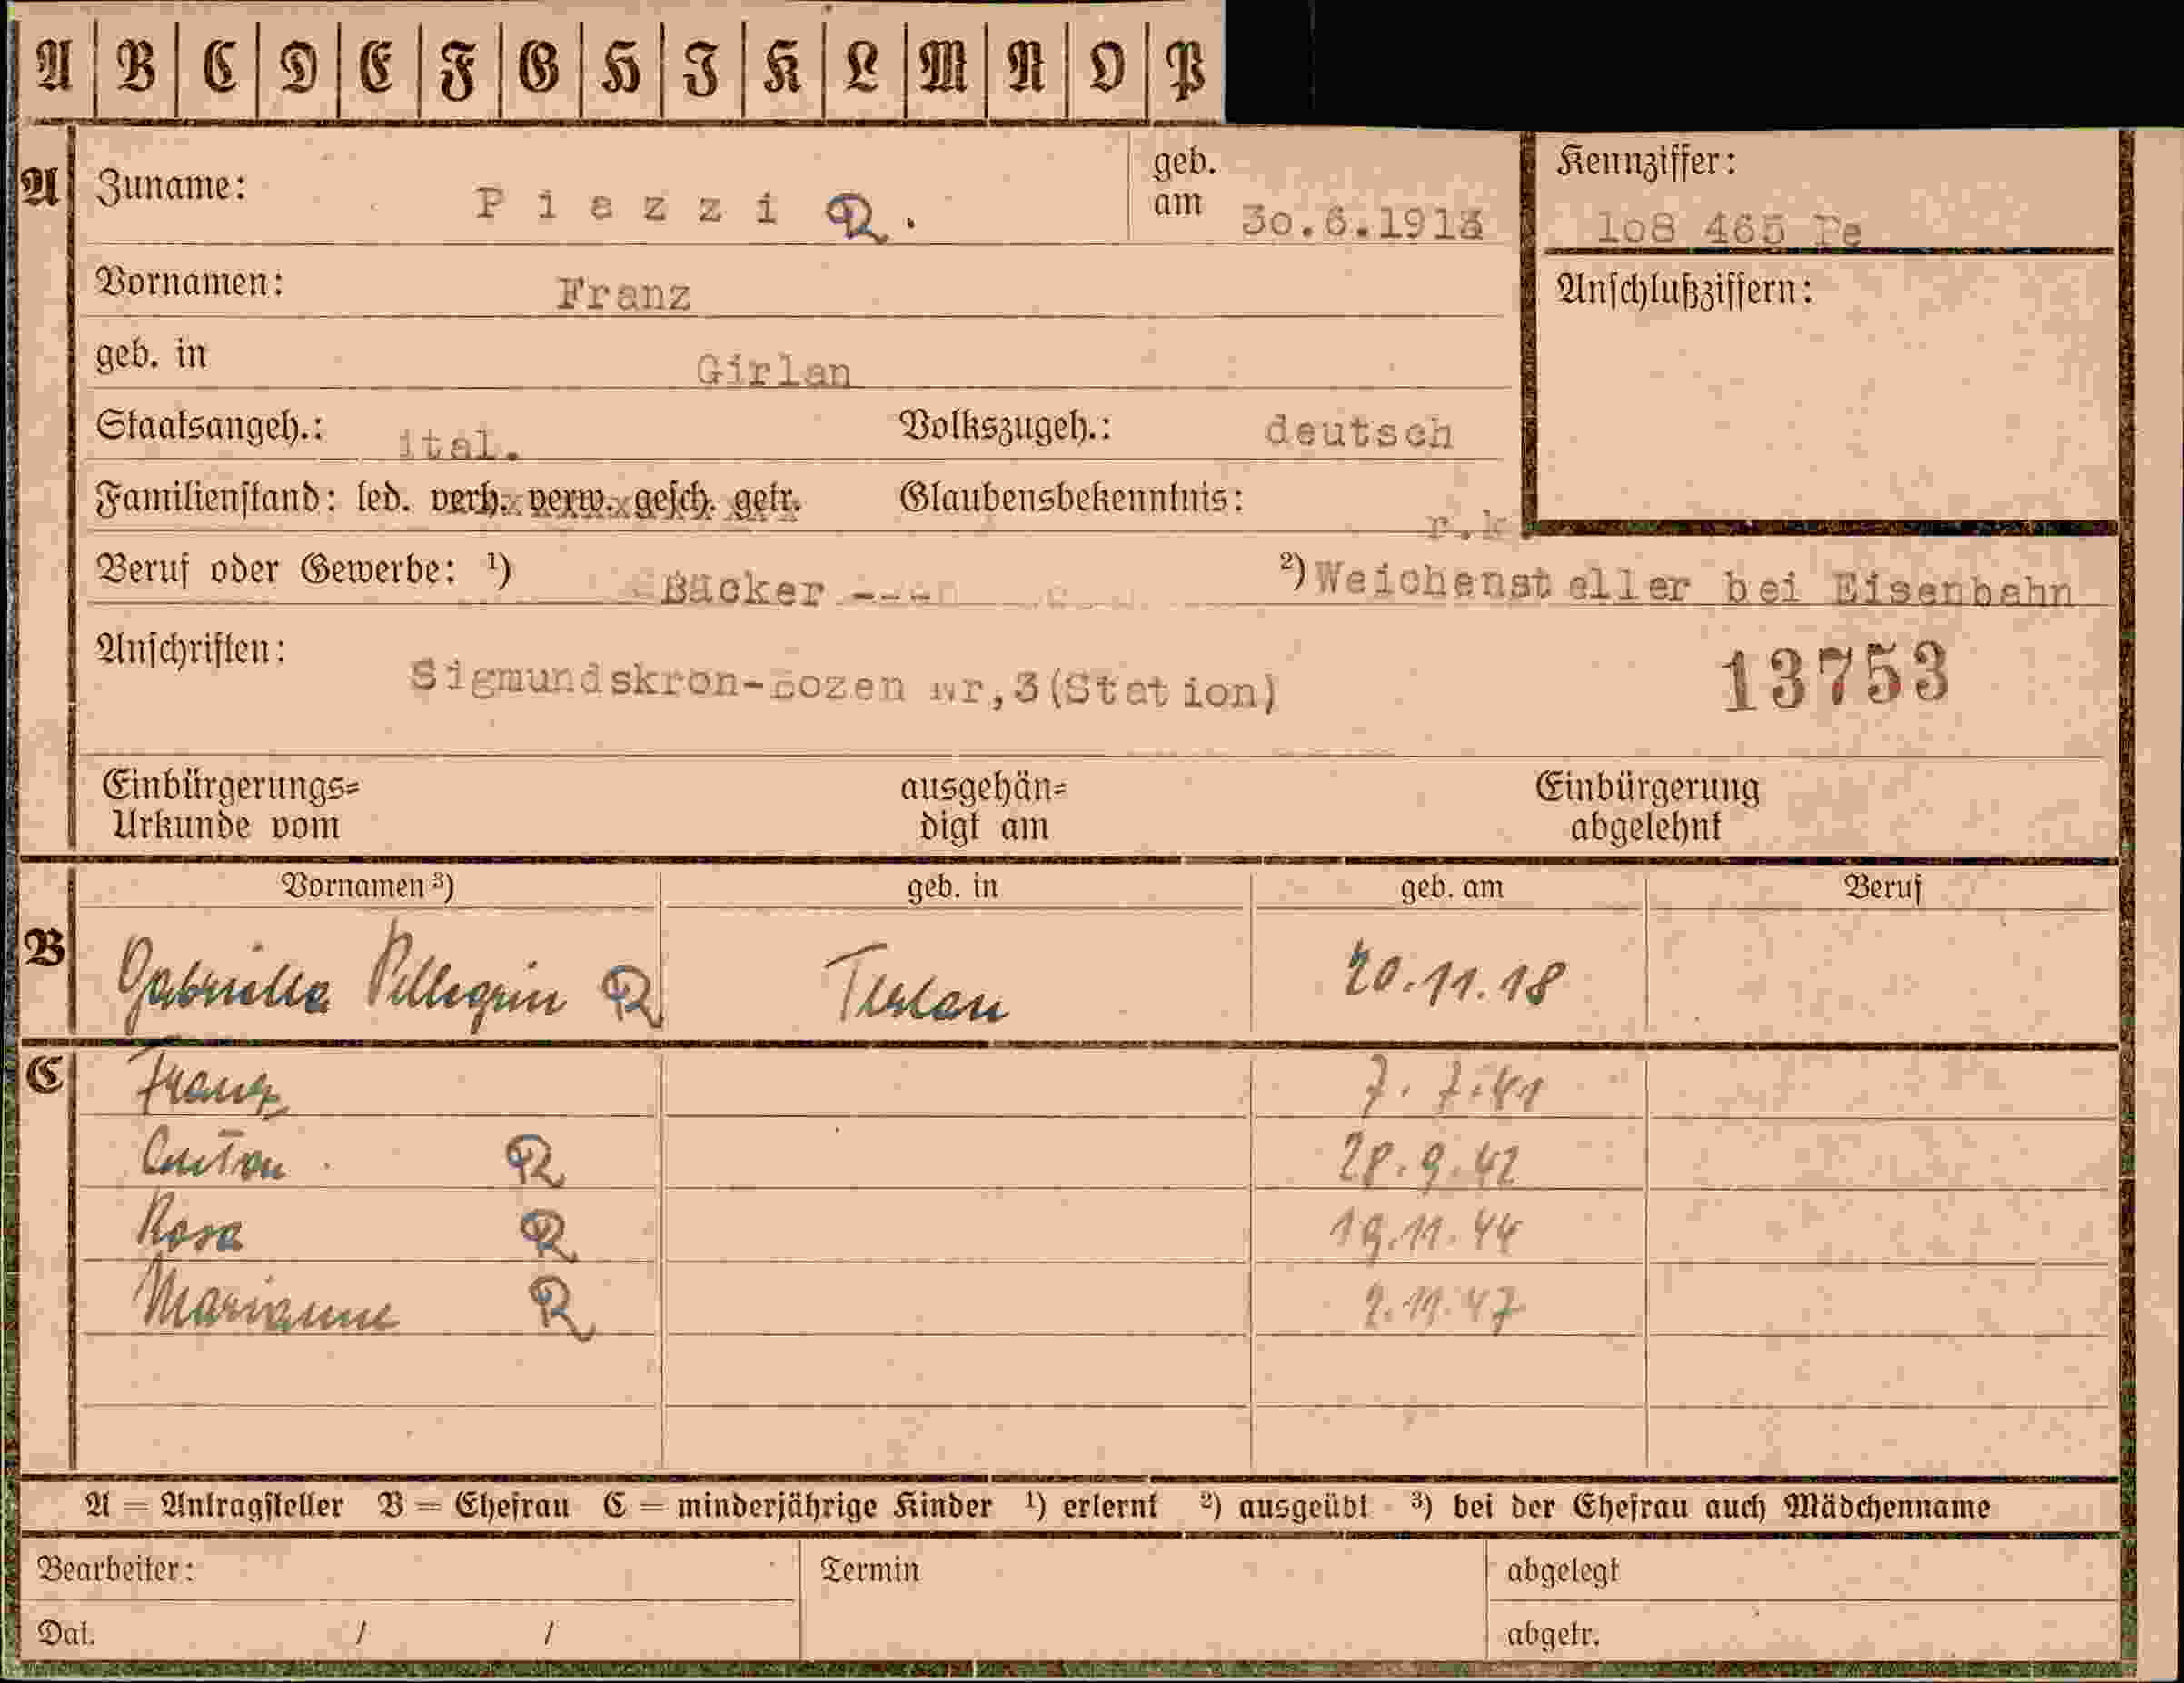 A B C D E F G H I K L M N O P
A Zuname: Piazzi R. geb. am 30.6.1913 Kennziffer: 108 465 Pe
Vornamen: Franz Anschlußziffern:
geb. in Girlan
Staatsangeh.: ital. Volkszugeh.: deutsch
Familienstand: led. verh. verw. gesch. getr. Glaubensbekenntnis: r.k
Beruf oder Gewerbe: ¹) Bäcker --- ²) Weichensteller bei Eisenbahn
Anschriften: Sigmundskron-Bozen Nr,3(Station) 13753
Einbürgerungs= ausgehän= Einbürgerung
Urkunde vom digt am abgelehnt
Vornamen ³) geb. in geb. am Beruf
B Gabriella Pellegrin R Terlan 20.11.18
C Franz 7.7.41
Anton R 28.9.42
Rosa R 19.11.44
Marianne R 2.11.47
A = Antragsteller B = Ehefrau C = minderjährige Kinder ¹) erlernt ²) ausgeübt ³) bei der Ehefrau auch Mädchenname
Bearbeiter: Termin abgelegt
Dat. / / abgetr.